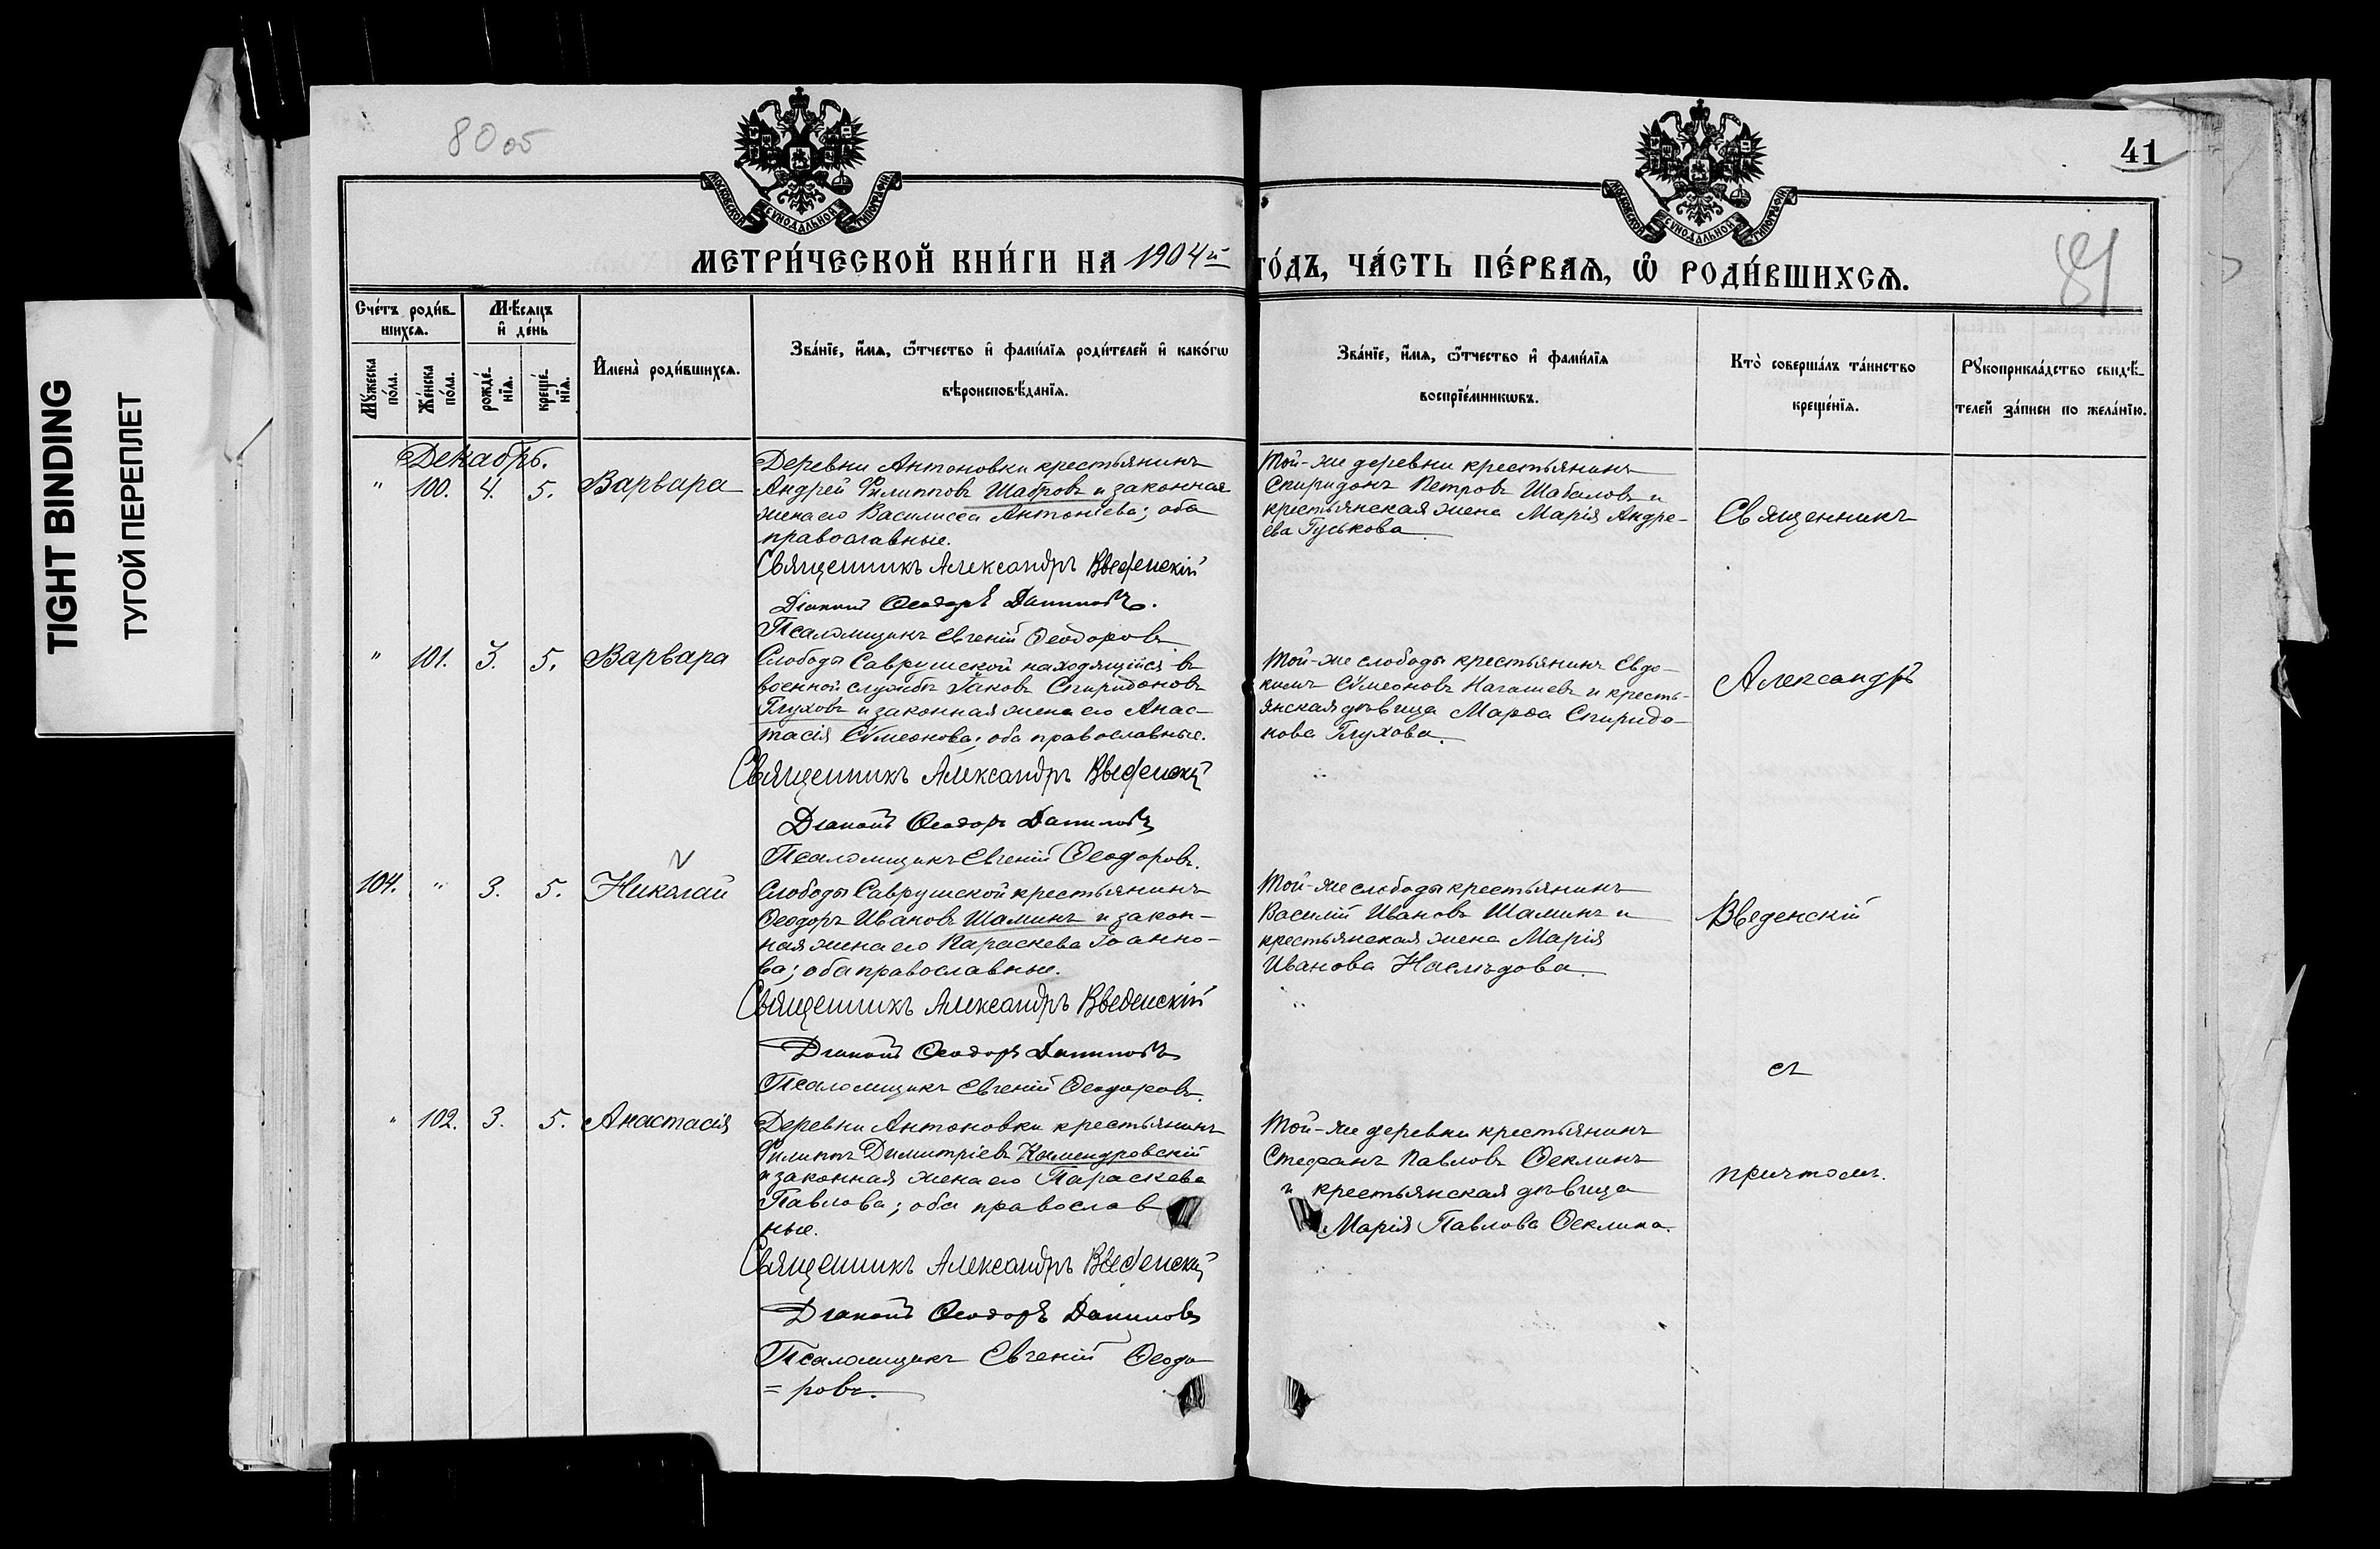 TIGHT BINDING
ТУГОЙ ПЕРЕПЛЕТ
80 об
41
МОСКОВСКОЙ СѴНОДАЛЬНОЙ ТИПОГРАФІИ
МОСКОВСКОЙ СѴНОДАЛЬНОЙ ТИПОГРАФІИ
МЕТРИ́ЧЕСКОЙ КНИ́ГИ НА 1904й
ГО́ДЪ, ЧА́СТЬ ПЕ́РВАЯ, Ѿ РОДИ́ВШИХСЯ.
81
Сче́тъ роди́в-
шихся.
Мѣ́сяцъ
и҆ де́нь
Мꙋ́жеска
по́ла.
Же́нска
по́ла.
рожде́-
нїя.
креще́-
нїя.
И҆мена̀ роди́вшихся.
Зва́нїе, и҆́мя, ѻ҆́тчество и҆ фами́лїя роди́телей и҆ како́гѡ
вѣроисповѣ́данїя.
Зва́нїе, и҆́мя, ѻ҆́тчество и҆ фами́лїя
воспрїе́мникѡвъ.
Кто̀ соверша́лъ та́инство
креще́нїя.
Рꙋкоприкла́дство свидѣ́-
телей за́писи по жела́нїю.
Декабрь.
" 100. 4. 5. Варвара
Деревни Антоновки крестьянинъ
Андрей Филипповъ Шабровъ и законная
жена его Василисса Антоніева; оба
православные.
Священникъ Александръ Введенскій
Діаконъ Ѳеодоръ Даниловъ.
Псаломщикъ Евгеній Ѳеодоровъ
Той-же деревни крестьянинъ
Спиридонъ Петровъ Шабаловъ и
крестьянская жена Марія Андре-
ева Гуськова
Священникъ
" 101. 3. 5. Варвара
Слободы Саврушской находящійся въ
военной службѣ Іаковъ Спиридоновъ
Глуховъ и законная жена его Анас-
тасія Сѵмеонова; оба православные.
Священникъ Александръ Введенскій
Діаконъ Ѳеодоръ Даниловъ
Псаломщикъ Евгеній Ѳеодоровъ.
Той-же слободы крестьянинъ Евдо-
кимъ Сѵмеоновъ и кресть-
янская дѣвица Марѳа Спиридо-
нова Глухова.
Александръ
104. " 3. 5. Николай
Слободы Саврушской крестьянинъ
Ѳеодоръ Ивановъ Шаминъ и закон-
ная жена его Параскева Іоанно-
ва; оба православные.
Священникъ Александръ Введенскій
Діаконъ Ѳеодоръ Даниловъ
Псаломщикъ Евгеній Ѳеодоровъ.
Той-же слободы крестьянинъ
Василій Ивановъ Шаминъ и
крестьянская жена Марія
Иванова Наслѣдова.
Введенскій
съ
" 102. 3. 5. Анастасія
Деревни Антоновки крестьянинъ
Филиппъ Димитріевъ Камендровскій
и законная жена его Параскева
Павлова; оба православ
ные.
Священникъ Александръ Введенскій
Діаконъ Ѳеодоръ Даниловъ
Псаломщикъ Евгеній Ѳеодо
=ровъ.
Той-же деревни крестьянинъ
Стефанъ Павловъ Ѳеклинъ
и крестьянская дѣвица
Марія Павлова Ѳеклина.
причтомъ.